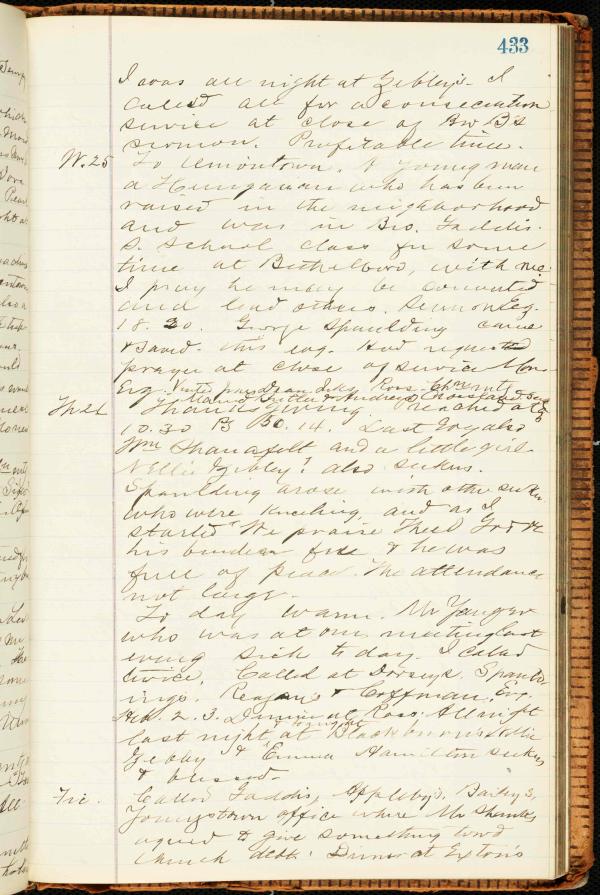 433
I was all night at Zebley's. I
called all for a consecration
service at close of Bro B's
sermon. Profitable time.
W. 25 To Uniontown. A young man
a Hungarian who has been
raised in the neighborhood
and was in Bro. Gaddis.
S. School class for some
time at Bethelboro, with me.
I pray he may be converted
and lead others. Sermon Ez.
18. 20. George Spaulding came
& saved. this evg. Had requested
prayer at close of service Mon
Evg. Visited Ross
Maud Butler & Andrew
Th 26 Thanksgiving. Preached at
10.30 Ps 50. 14. Last evg also
Wm Shanafelt and a little girl
Nellie Zebley? also seekers.
Spaulding arose with other seekers
who were kneeling and as I
started "We praise Thee O God
his burden fell & he was
full of peace. The attendance
not large.
To day warm. Mr Yauger
who was at our meeting last
evening sick to day. I called
twice. Called at Dorseys. Spauld
ings. Reagan's & Coffman. Evg.
Heb. 2. 3. Dinner at Ross. All night
last night at Blackburns Nellie
tonight
Zebley & Emma Hamilton seekers
& blessed.
Fri. Called Gaddis, Appleby's, Bailey's,
Youngstown office where Mr Shanks
agreed to give something tow'd
Church debt. Dinner at Exton's